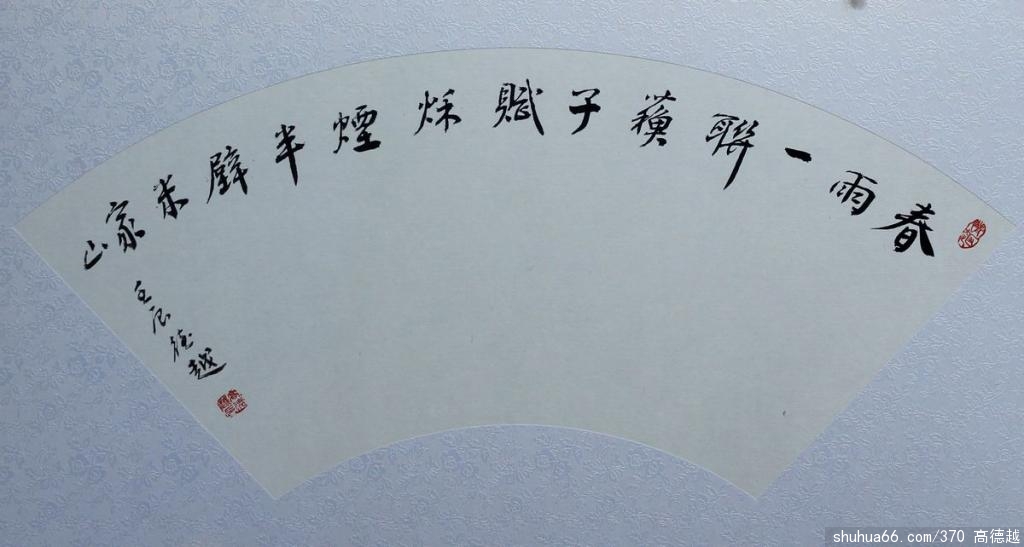 春雨一聯蘓子賦秌煙半壁米家山
壬辰德越
shuhua66.com/370 高德越